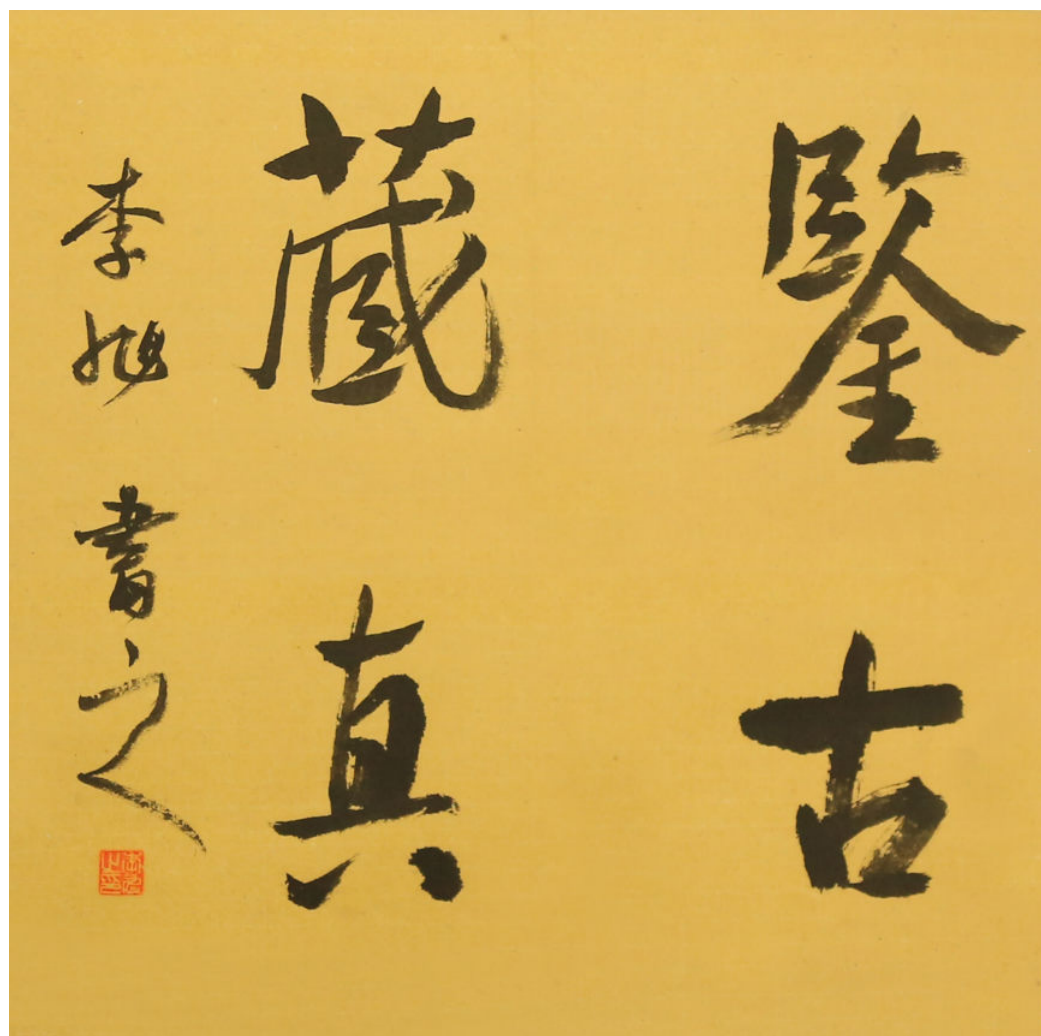 鑒古
藏真
李旭書之